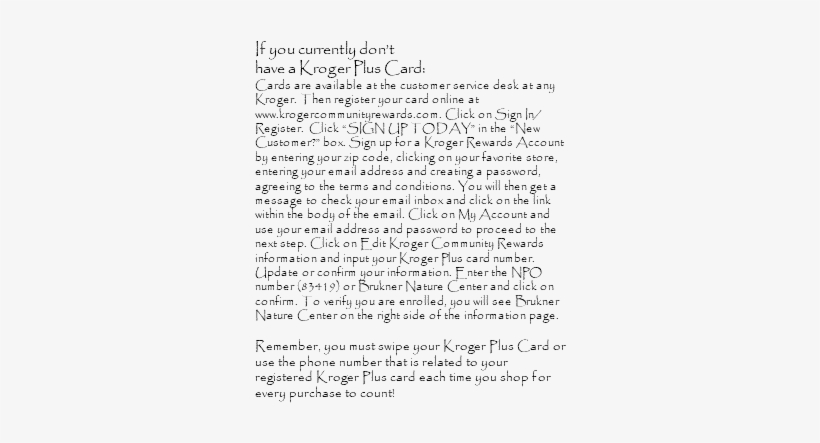 If you currently don't
have a Kroger Plus Card:
Cards are available at the customer service desk at any
Kroger. Then register your card online at
www.krogercommunityrewards.com. Click on Sign In/
Register. Click “SIGN UP TODAY” in the “New
Customer?” box. Sign up for a Kroger Rewards Account
by entering your zip code, clicking on your favorite store,
entering your email address and creating a password,
agreeing to the terms and conditions. You will then get a
message to check your email inbox and click on the link
within the body of the email. Click on My Account and
use your email address and password to proceed to the
next step. Click on Edit Kroger Community Rewards
information and input your Kroger Plus card number.
Update or confirm your information. Enter the NPO
number (83419) or Brukner Nature Center and click on
confirm. To verify you are enrolled, you will see Brukner
Nature Center on the right side of the information page.
Remember, you must swipe your Kroger Plus Card or
use the phone number that is related to your
registered Kroger Plus card each time you shop for
every purchase to count!